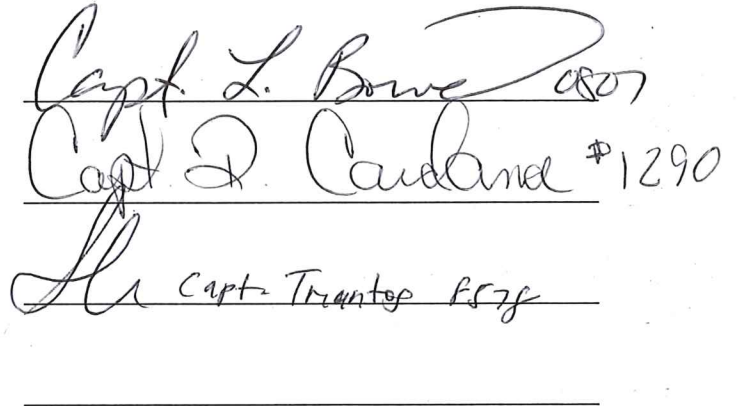 Capt. L. Bowe 0807
Capt. D. Cardand #1290
Capt. Triantos F578